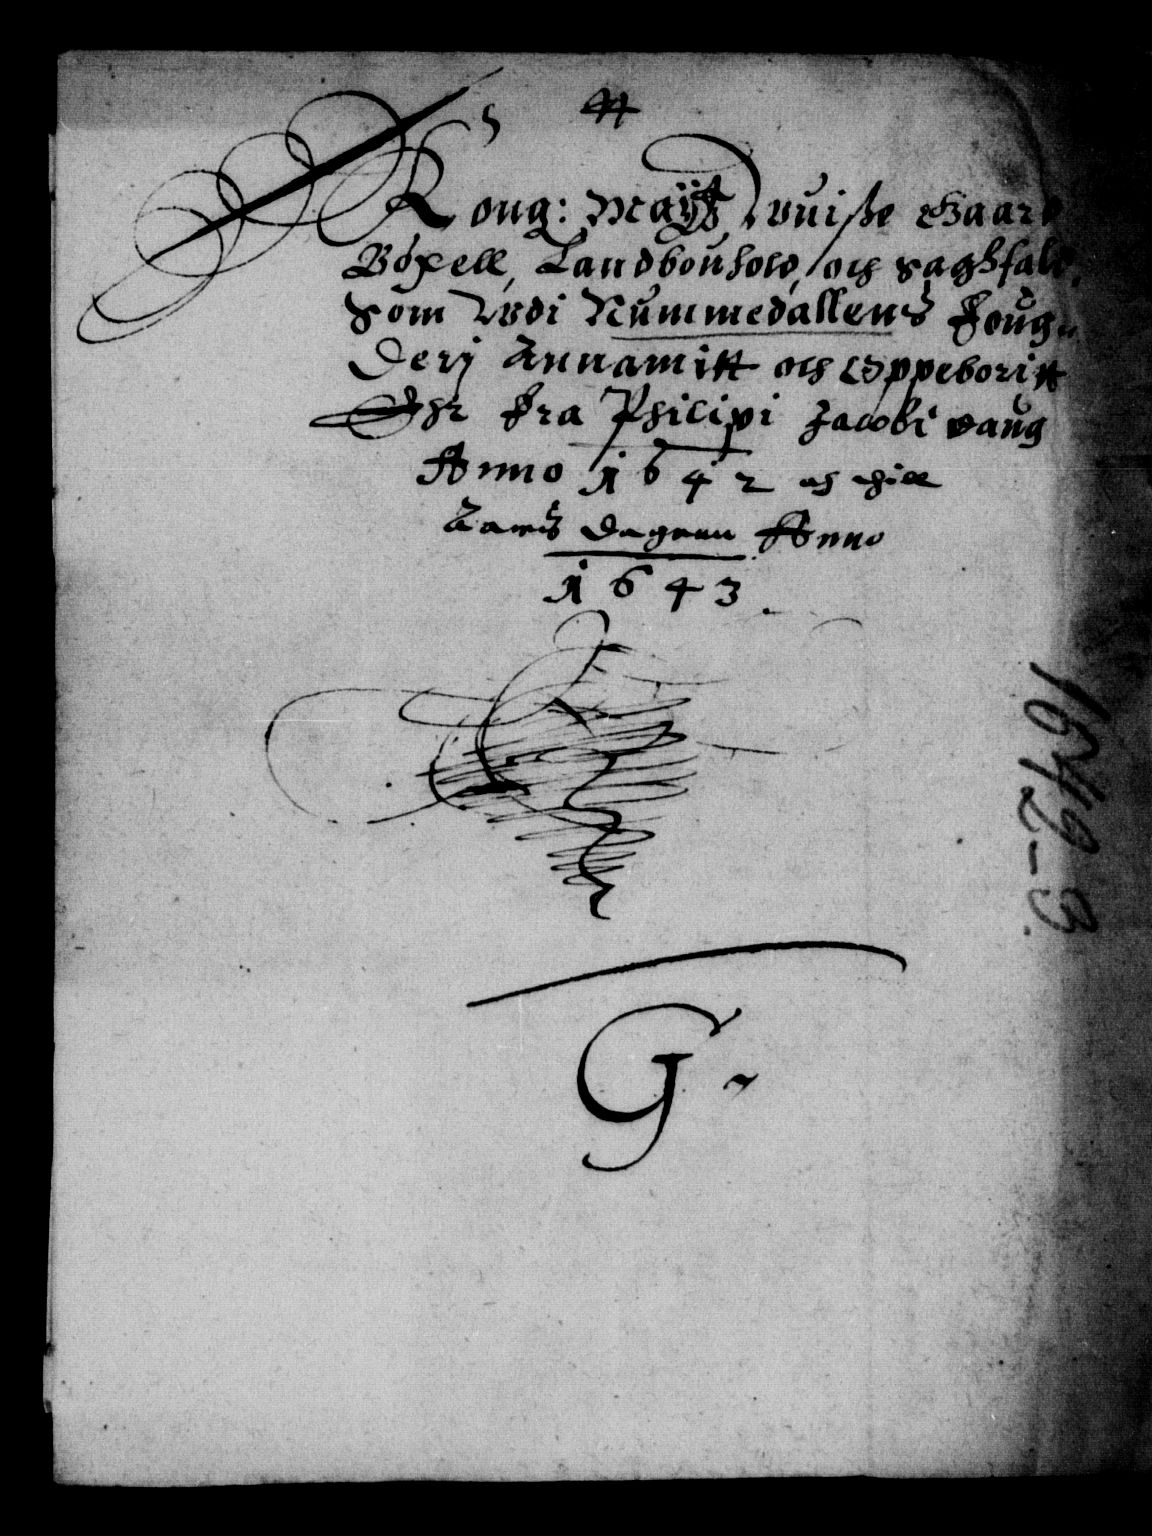 Kong: Maÿtz Wuiße Gaard
Böxell, Landbouhold, och saghfald,
Som Udi Nummedallens foug¬
derj Annamitt och Oppeboritt
Ehr fra Philipi Jacobi daug
Anno 1642 och thill
Aars dagenn Anno
1643.
G
1642-3.